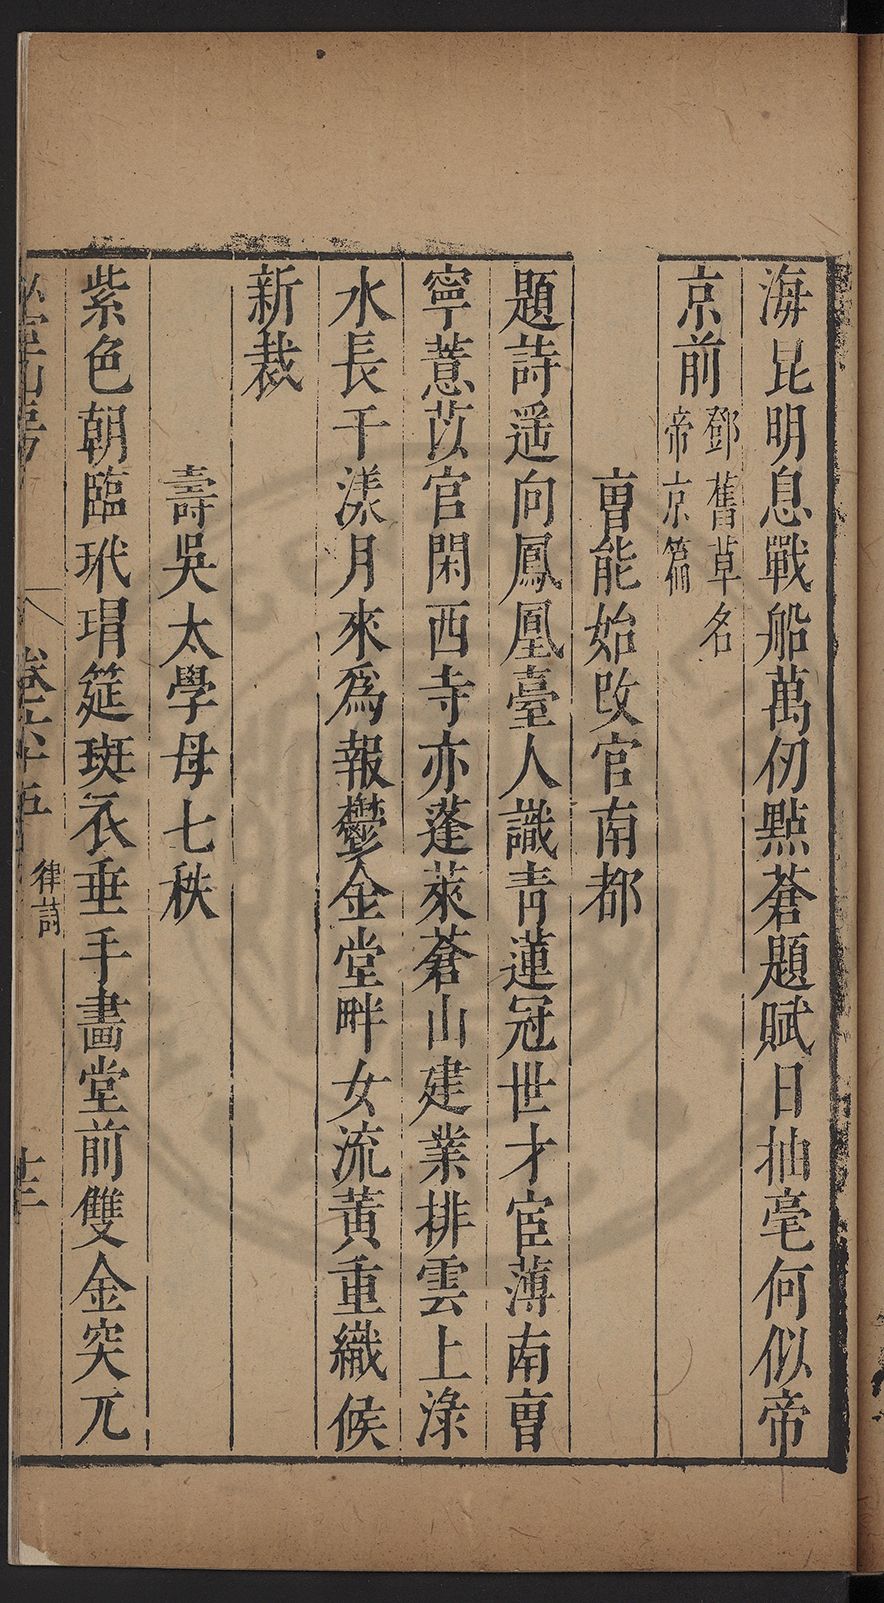 海昆明息戰船萬仞點蒼題賦日抽毫何似帝
京前鄧舊草名
帝京篇
曺能始改官南都
題詩遥向鳳凰臺人識青蓮冠世才宦薄南曺
寧薏苡官閑西寺亦蓬萊蒼山建業排雲上淥
水長干漾月來爲報鬱金堂畔女流黄重織候
新裁
壽吳太學母七秩
紫色朝臨玳瑁筵斑衣垂手畵堂前雙金突兀
卷六十五
律詩
十三